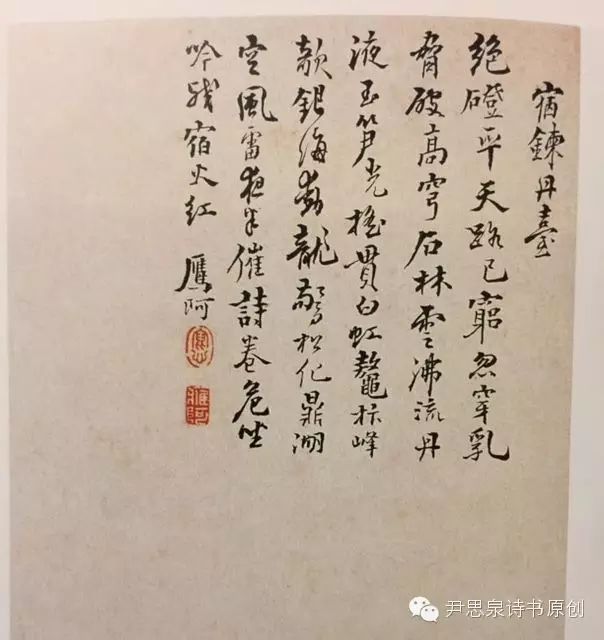 宿鍊丹臺
絕磴平天路已窮忽穿乳
脅破高穹石林雲沸流丹
液玉笋光搖貫白虹鰲抃峰
欹銀海動龍驚松化鼎湖
空風雷夜半催詩卷危坐
吟殘宿火紅 鷹阿
鷹阿
尹思泉诗书原创